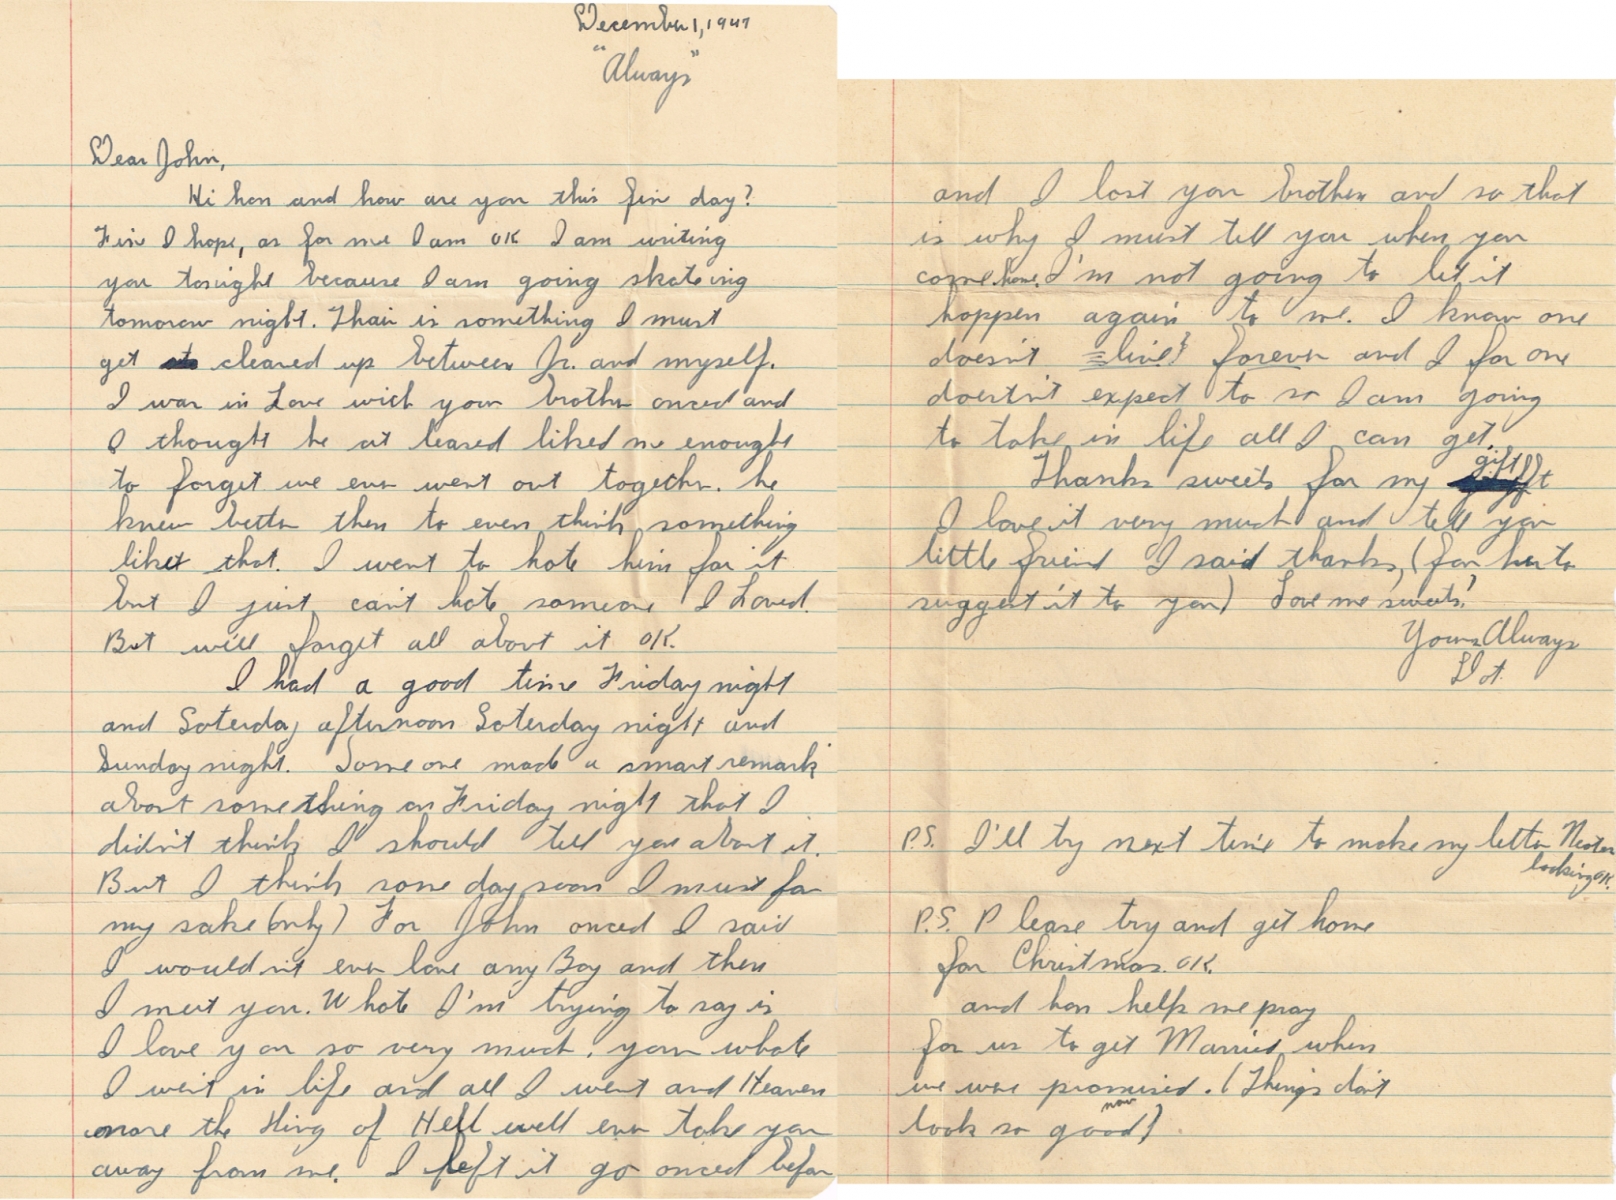 December 1, 1947
"Always"
Dear John,
Hi hon and how are you this fin day?
Fin I hope, as for me I am OK I am writing
you tonight because I am going skateing
tomorow night. Thair is something I must
get cleared up between Jr. and myself.
I was in Love with your brother onced and
I thought he at leased liked me enought
to forget we ever went out together. he
knew better then to even think something
like that. I went to hate him for it
but I just can't hate someone I Loved.
But we'll forget all about it OK.
I had a good time Friday night
and Saterday afternoon Saterday night and
Sunday night. Some one made a smart remark
about something on Friday night that I
didn't think I should tell you about it.
But I think some day soon I must for
my sake (only) For John onced I said
I wouldn't ever love any Boy and then
I meet you. Whate I'm trying to say is
I love you so very much, your whate
I went in life and all I went and Heaven
more the King of Hell well ever take you
away from me. I left it go onced befor
and I lost your brother and so that
is why I must tell you when you
come home. I'm not going to let it
happen again to me. I know one
doesn't "live" forever and I for one
doestn't expect to so I am going
to take in life all I can get.
Thanks sweets for my gift
I love it very much and tell your
little friend I said thanks, (for her to
suggest it to you) Love me sweets?
Yours Always
Dot.
P.S. I'll try next time to make my letter Neater
looking OK.
P.S. Please try and get home
for Christmas. OK.
and hon help me pray
for us to get Married when
we were promised. (Things don't
look so good now)